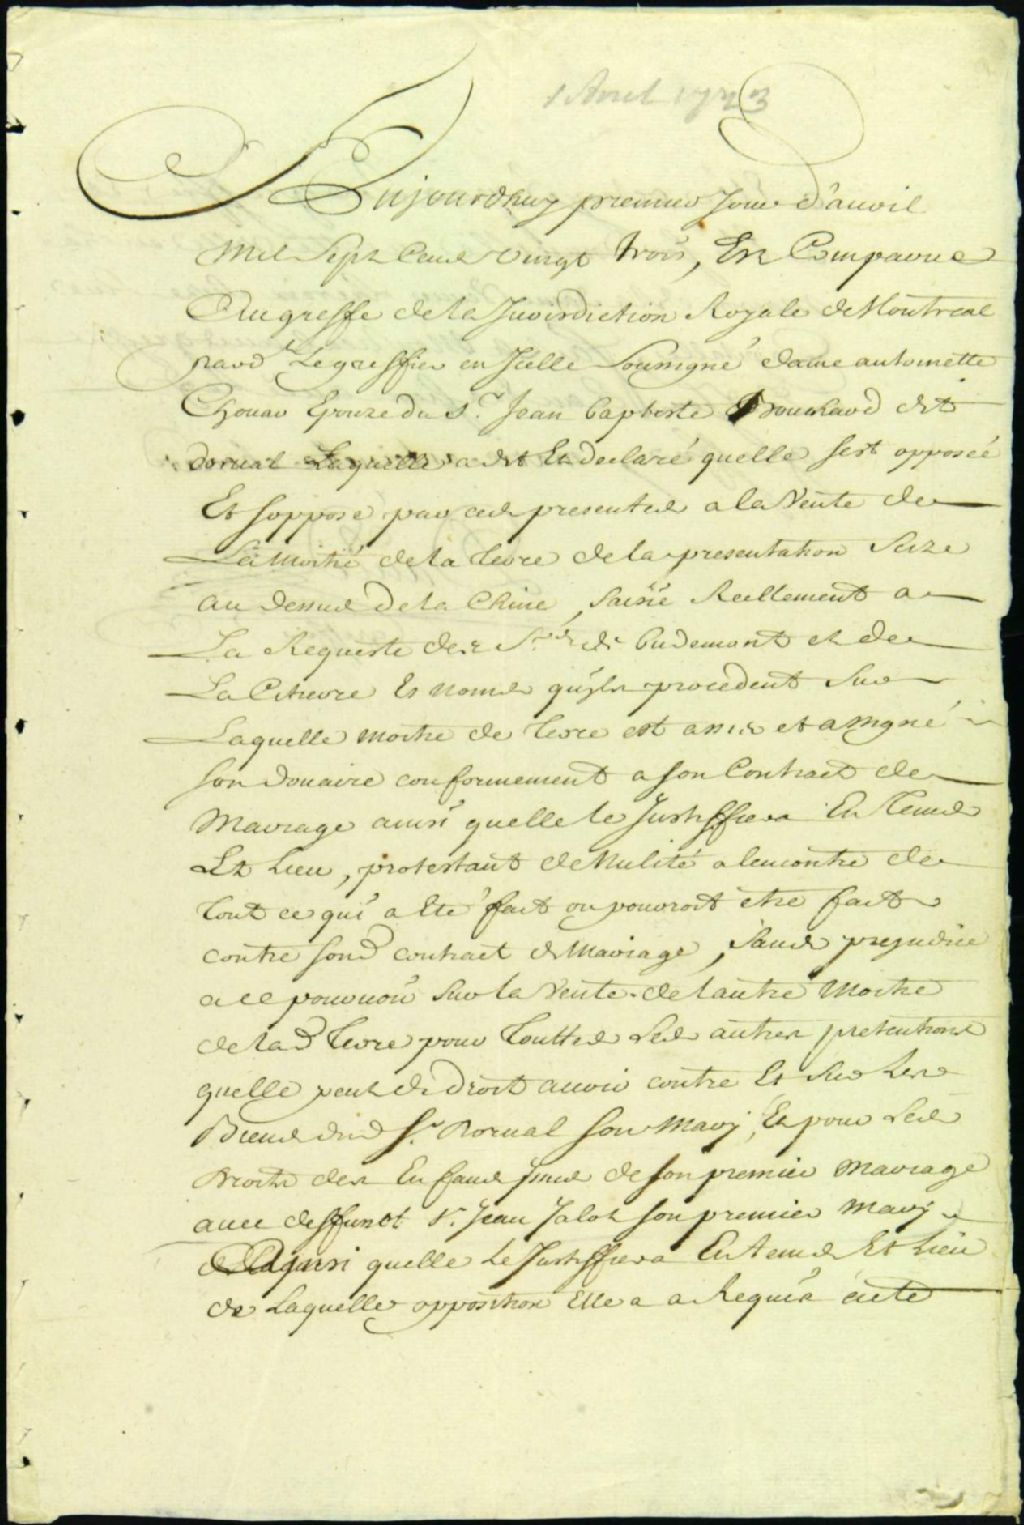 1 Avril 1723
Aujourdhuy premier Jour d'auril
Mil Sept Cent vingt trois, Est Comparue
Au greffe de la Jurisdiction Royale de Montreal
pard.t Le greffier en Icelle Soussigné dame antoinette
Chouar Epouze du S.r Jean baptiste Bouchard dit
dorual Laquelle a dit Et declaré quelle sest opposée
Et soppose par ces presentes a la Vente de
La Moitié de la terre de la presentation Scize
au dessus de la Chine, saisie Reellement a
La Requeste des S.rs de budemont et de
La Chevre Es noms quils procedent Sur
Laquelle moitie de terre est assis et assigné
son douaire conformement a son Contract de
Mariage ainsi quelle le Justiffiera En tems
Et Lieu, protestant de Nulité a lencontre de
tout ce qui a Eté fait ou pouroit être fait
contre sond contract de Mariage, sans prejudice
a se pourvoir Sur la Vente de lautre Moitie
de lad terre pour touttes Les autres pretentions
quelle peut de droit auoir contre Et Sur Les
Biens dud S.r Dorual son Mary, Et pour Les
Droits des Enfans Jssus de son premier Mariage
auec deffunct S.r Jean Jalot son premier Mary
ainsi quelle Le Justiffiera En tems Et Lieu
de Laquelle opposition Elle a Requis acte